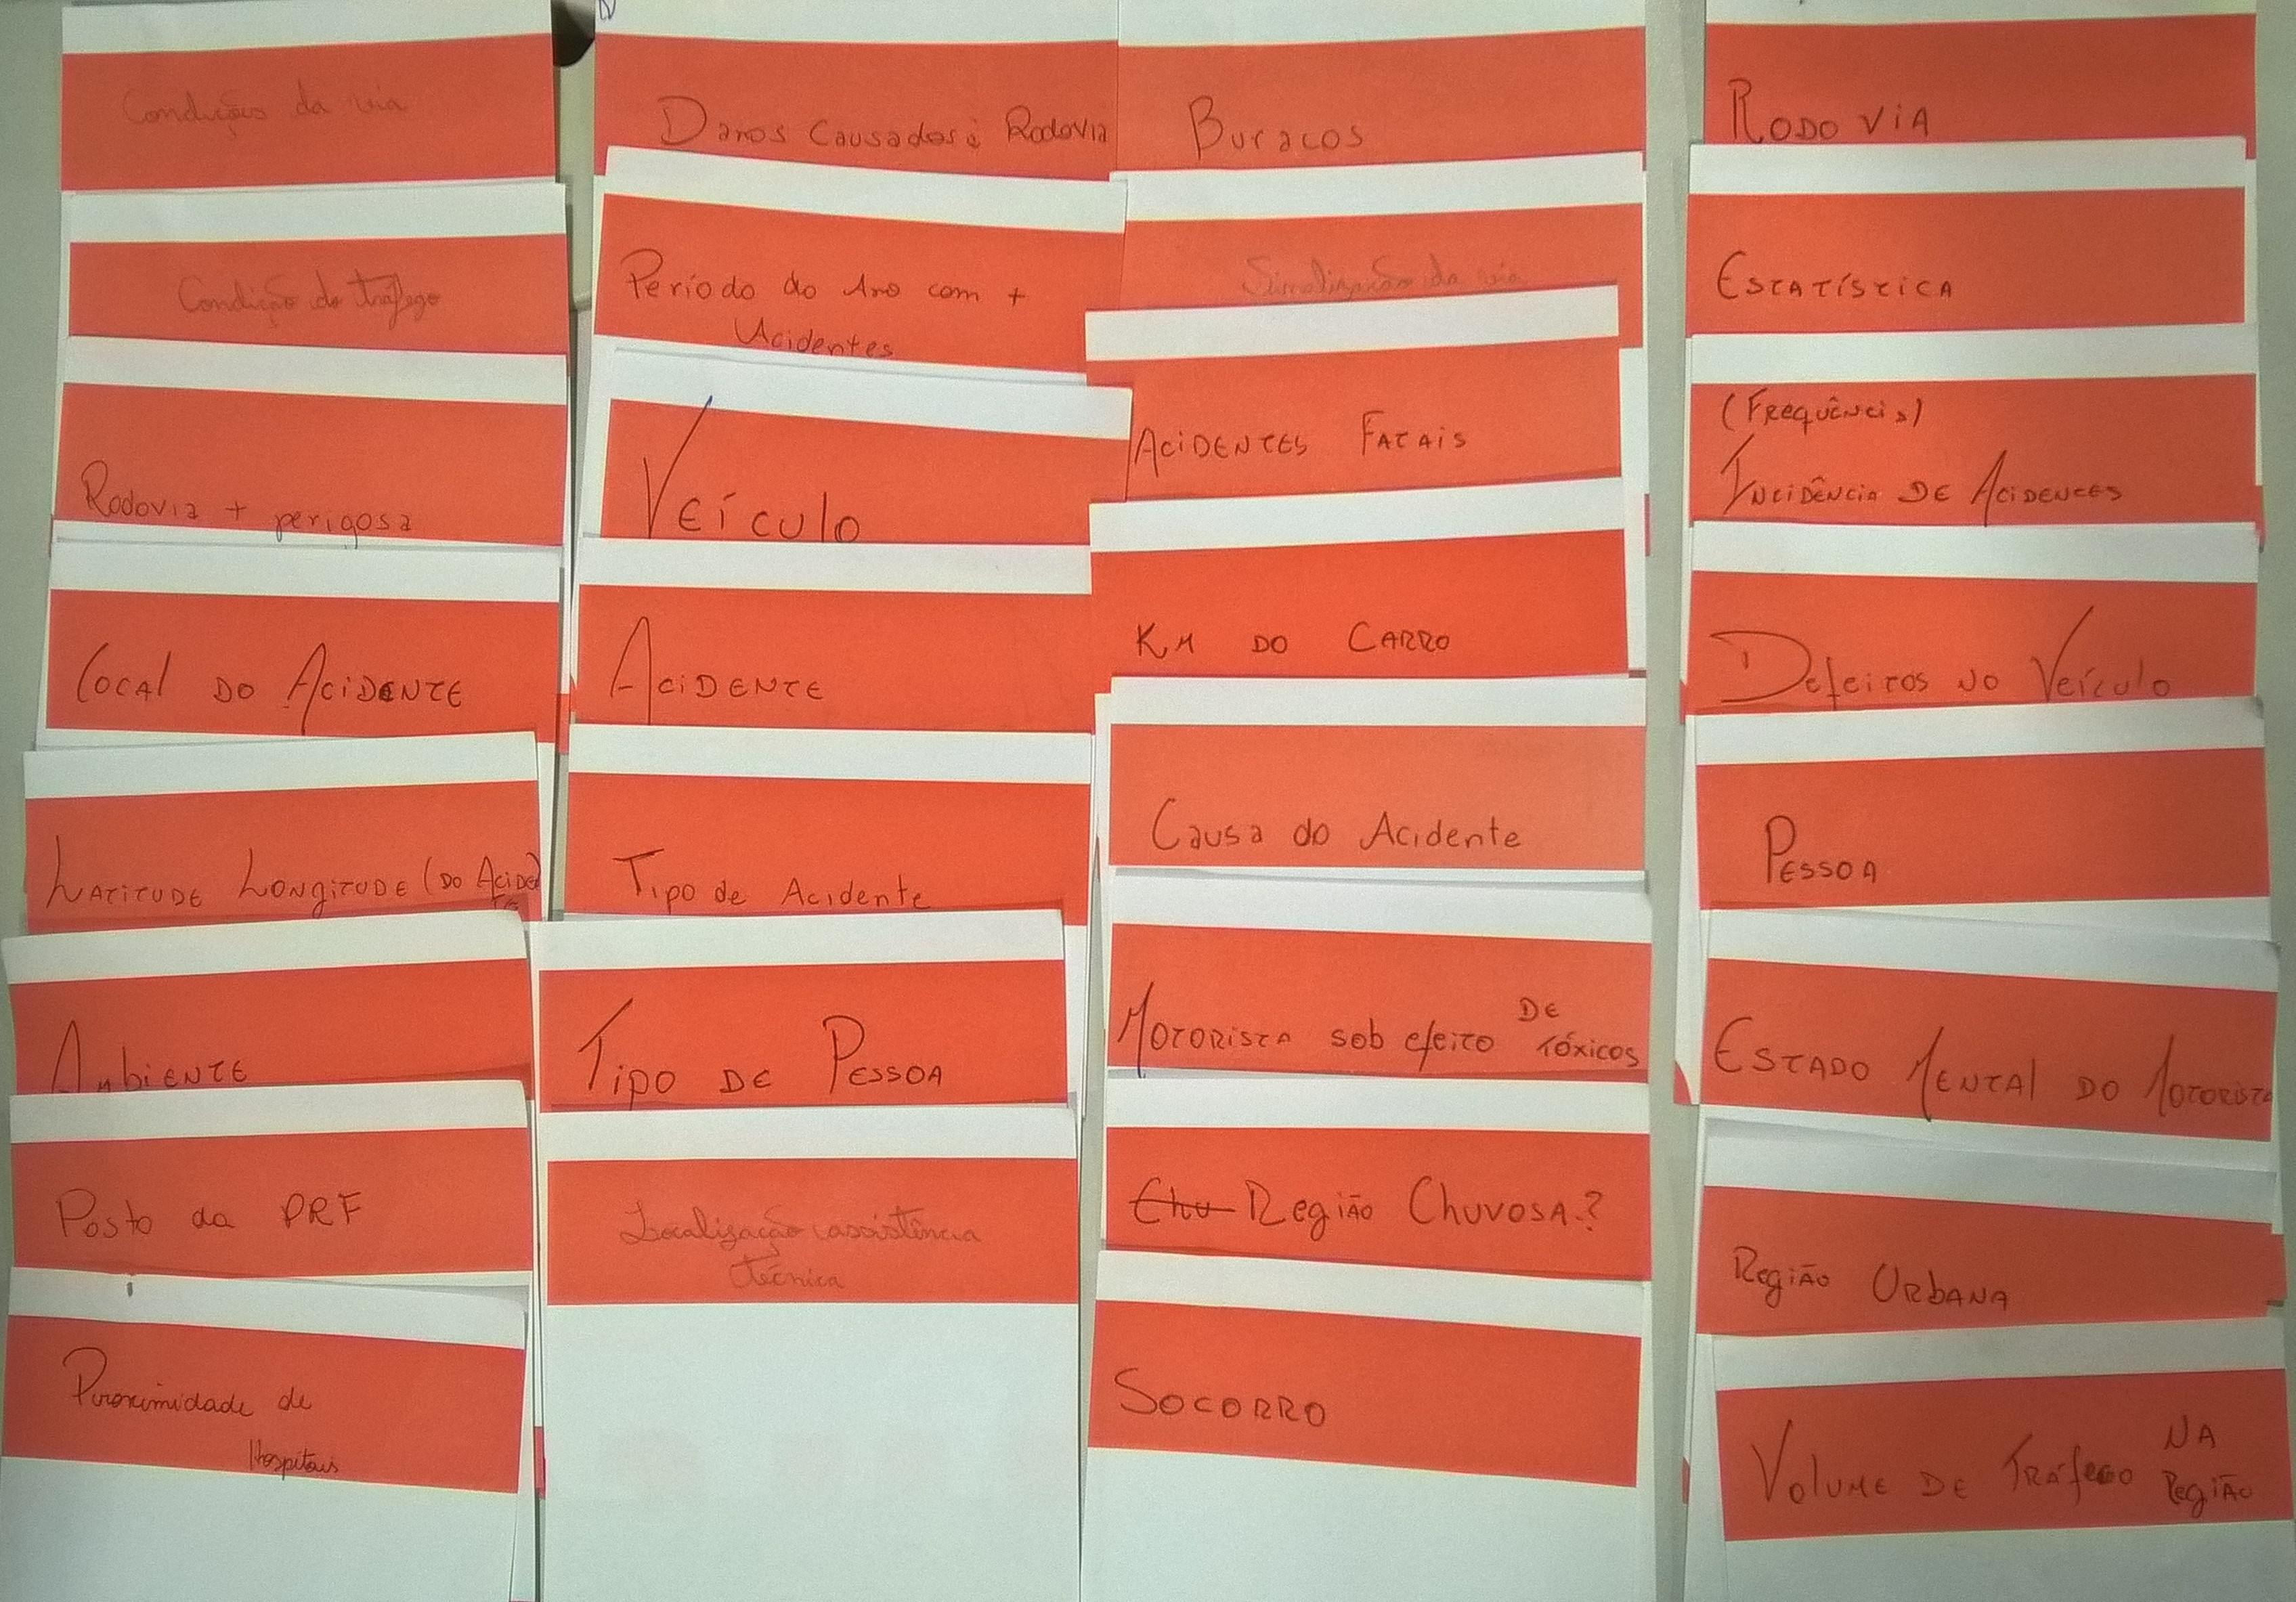 Condições da via
Condição do tráfego
Rodovia + perigosa
Local do Acidente
Latitude Longitude (do Aciden
te
Ambiente
Posto da PRF
Proximidade de
Hospitais
Danos Causados à Rodovia
Período do Ano com +
Acidentes
Veículo
Acidente
Tipo de Acidente
Tipo de Pessoa
Localização assistência
técnica
Buracos
Sinalização da via
Acidentes Fatais
KM do Carro
Causa do Acidente
Motorista sob efeito de
tóxicos
Chu Região Chuvosa?
Socorro
Rodovia
Estatística
(Frequência)
Incidência de Acidentes
Defeitos no Veículo
Pessoa
Estado Mental do Motorista
Região Urbana
Volume de Tráfego na
Região